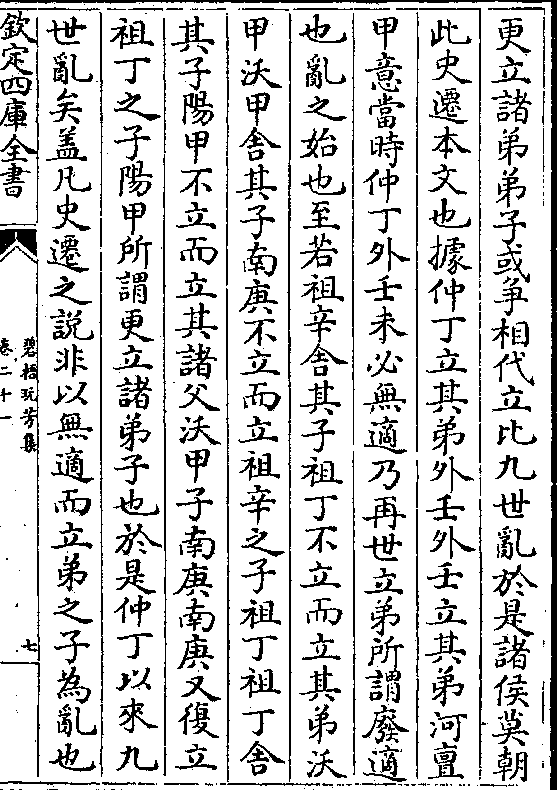 更立諸弟弟子或争相代立比九世亂於是諸侯莫朝
此史遷本文也據仲丁立其弟外壬外壬立其弟河亶
甲意當時仲丁外壬未必無適乃再世立弟所謂廢適
也亂之始也至若祖辛舍其子祖丁不立而立其弟沃
甲沃甲舍其子南庚不立而立祖辛之子祖丁祖丁舍
其子陽甲不立而立其諸父沃甲子南庚南庚又復立
祖丁之子陽甲所謂更立諸弟子也於是仲丁以來九
世亂矣盖凡史遷之說非以無適而立弟之子為亂也
欽定四庫全書
碧梧玩芳集
卷二十一
七